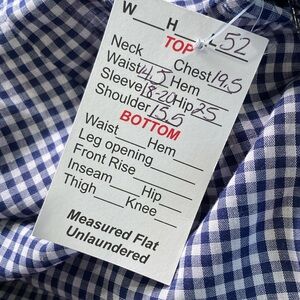 W___ H___ L 52
TOP
Neck___ Chest 19.5
Waist 14.5 Hem___
Sleeve 18-20 Hip 25
Shoulder 15.5
BOTTOM
Waist___ Hem___
Leg opening___
Front Rise___
Inseam___ Hip___
Thigh___ Knee___
Measured Flat
Unlaundered